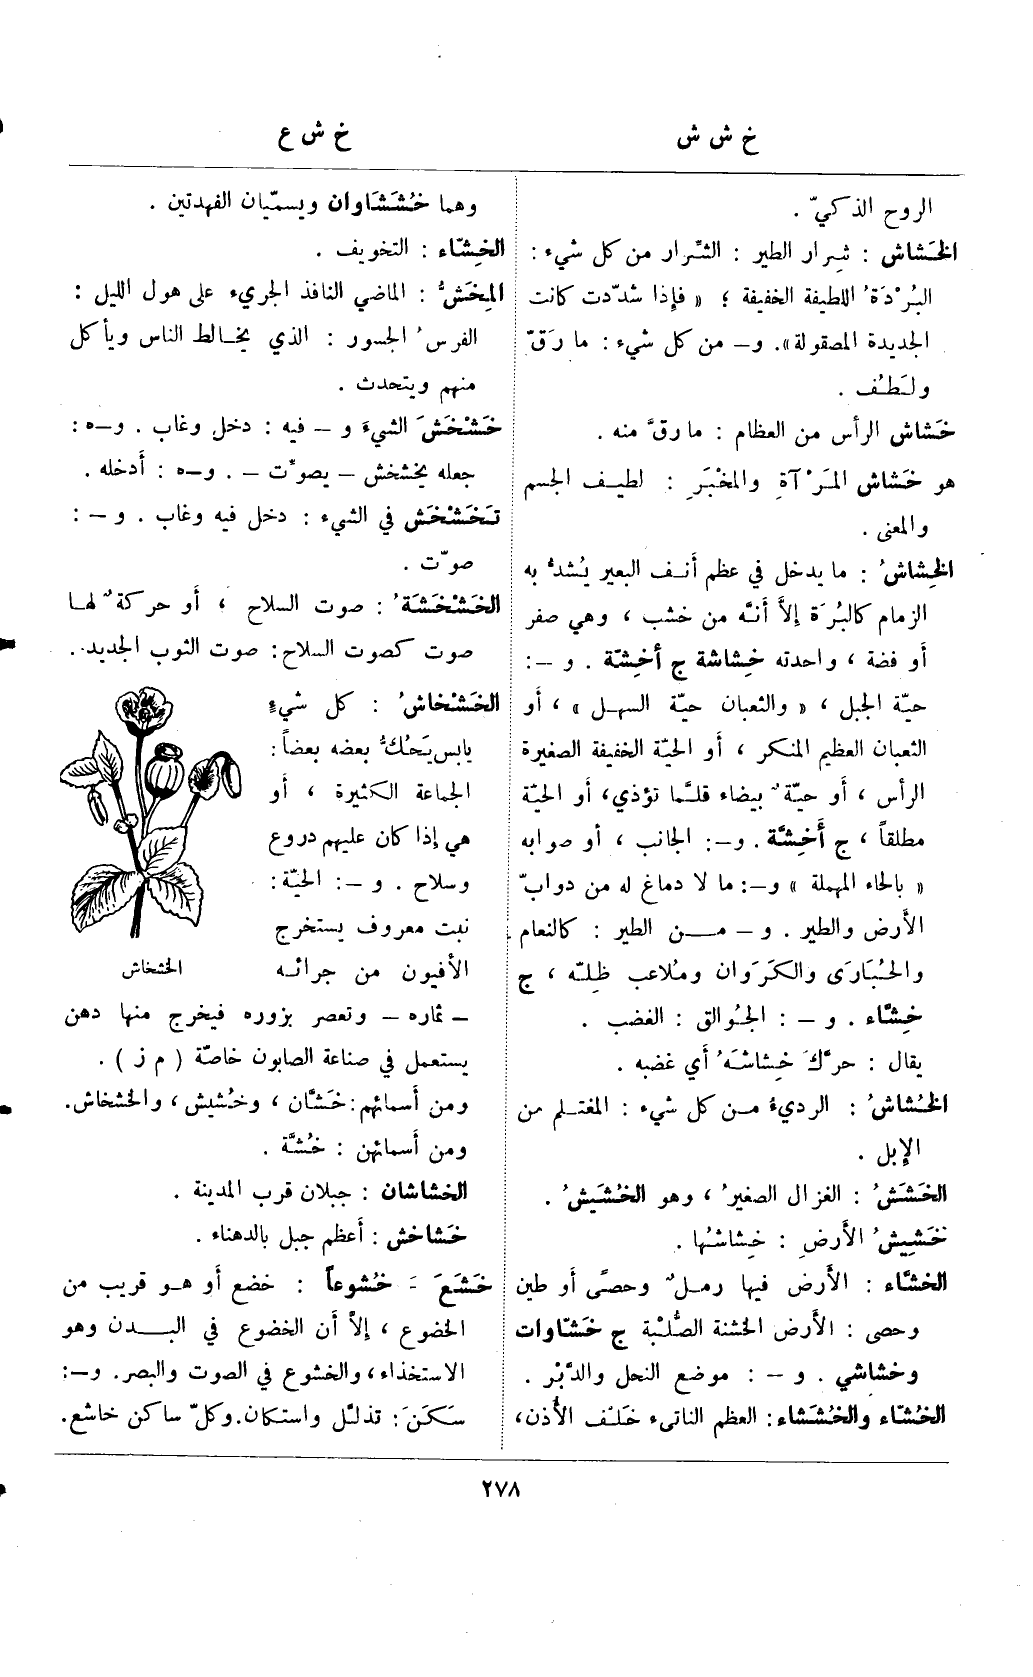 خ ش ش
خ ش ع
الروح الذكيّ .
الخَشاش : شِرار الطير : الشّرار من كل شيء :
البُرْدَةُ اللطيفة الخفيفة ؛ « فإذا شدّدت كانت
الجديدة المصقولة ». و– من كل شيء : ما رَقّ
ولَطُف .
خَشاش الرأس من العظام : ما رقَّ منه .
هو خَشاش المَرْآةِ والمَخْبَرِ : لطيف الجسم
والمعنى .
الخِشاشُ : ما يدخل في عظم أنف البعير يُشدُّ به
الزمام كالبُرَة إلاَّ أنَّه من خشب ، وهي صفر
أو فضة ، واحدته خِشاشة ج أخِشّة . و –:
حيّة الجبل ، « والثعبان حيّة السهل » ، أو
الثعبان العظيم المنكر ، أو الحيّة الخفيفة الصغيرة
الرأس ، أو حيّةٌ بيضاء قلَّما تؤذي، أو الحيّة
مطلقاً ، ج أَخِشَّة . و–: الجانب ، أو صوابه
« بالحاء المهملة » و–: ما لا دماغ له من دوابّ
الأرض والطير . و – من الطير : كالنعام
والحُبارَى والكَرَوان ومُلاعب ظِلّه ، ج
خِشَّاء . و – : الجُوالق : الغضب .
يقال : حرَّكَ خِشاشَهُ أي غضبه .
الخُشاشُ : الرديءُ من كل شيء : المغتلم من
الإبل .
الخَشَشُ : الغزال الصغيرُ ، وهو الخُشَيشُ .
خَشِيشُ الأَرضِ : خِشاشُها .
الخشَّاء : الأَرض فيها رملٌ وحصًى أو طين
وحصى : الأَرض الخشنة الصُّلْبة ج خَشّاوات
وخشاشي . و – : موضع النحل والدَّبْر .
الخُشّاء والخُشَشاء : العظم الناتىء خَلْف الأذن،
وهما خُشَشَاوان ويسمّيان الفهدتين .
الخِشّاء : التخويف .
المِخَشُّ : الماضي النافذ الجريء على هول الليل :
الفرسُ الجسور : الذي يخالط الناس ويأكل
منهم ويتحدث .
خَشْخَشَ الشيءَ و – فيه : دخل وغاب . و–ه :
جعله يخشخش – يصوّت – . و–ه : أدخله .
تَخَشْخَش في الشيء : دخل فيه وغاب . و – :
صوّت .
الخَشْخَشَةُ : صوت السلاح ، أو حركةٌ لها
صوت كصوت السلاح : صوت الثوب الجديد .
الخَشْخاشُ : كل شيءٍ
يابس يَحُكُّ بعضه بعضاً :
الجماعة الكثيرة ، أو
هي إذا كان عليهم دروع
وسلاح . و –: الحيّة :
نبت معروف يستخرج
الأفيون من جرائه
الخشخاش
– ثماره – وتعصر بزوره فيخرج منها دهن
يستعمل في صناعة الصابون خاصّة ( م ز ) .
ومن أسمائهم : خَشَّان ، وخُشيش ، والخشخاش.
ومن أسمائهن : خُشَّة .
الخشاشان : جبلان قرب المدينة .
خَشاخش : أعظم جبل بالدهناء .
خَشَعَ –َ خُشوعاً : خضع أو هو قريب من
الخضوع ، إلاَّ أن الخضوع في البدن وهو
الاستخذاء ، والخشوع في الصوت والبصر. و–:
سَكَنَ : تذلّل واستكان. وكلّ ساكن خاشع.
٢٧٨